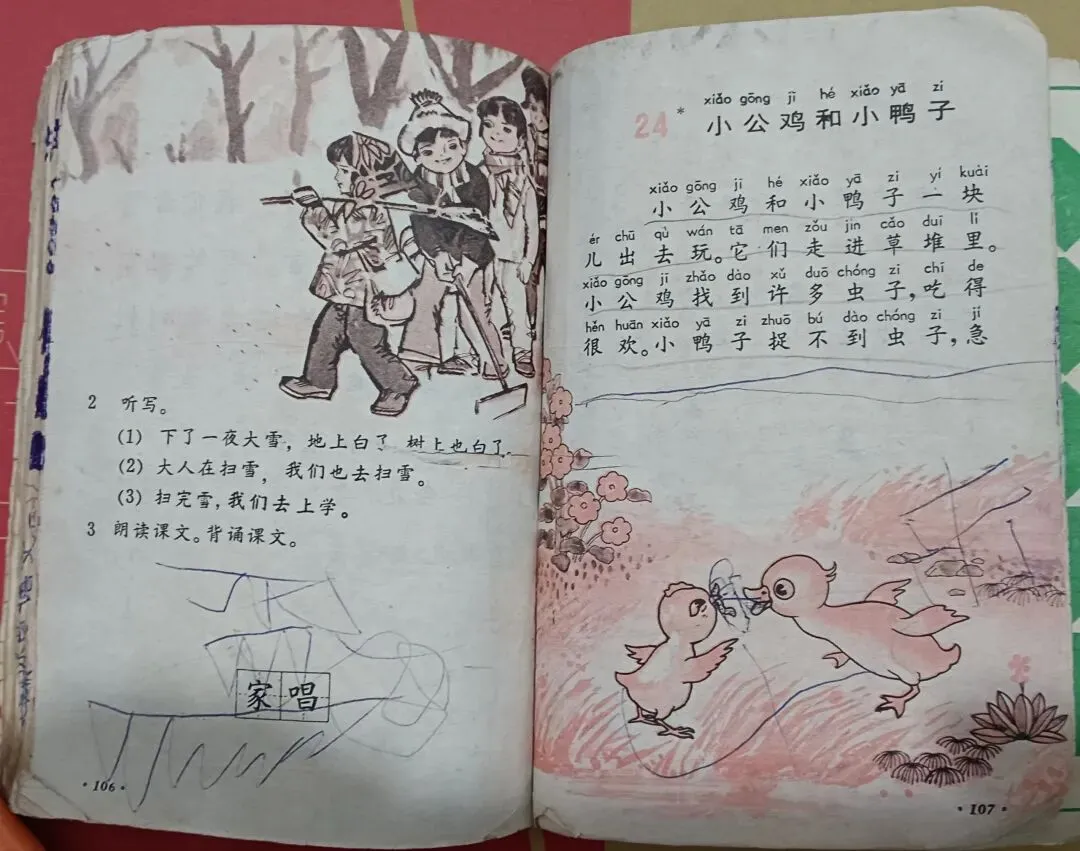 2 听写。
(1) 下了一夜大雪，地上白了 树上也白了
(2) 大人在扫雪，我们也去扫雪。
(3) 扫完雪，我们去上学。
3 朗读课文。背诵课文。
家 唱
·106·
xiǎo gōng jī hé xiǎo yā zi
24* 小公鸡和小鸭子
xiǎo gōng jī hé xiǎo yā zi yí kuài
小公鸡和小鸭子一块
ér chū qù wán tā men zǒu jìn cǎo duī lǐ
儿出去玩。它们走进草堆里。
xiǎo gōng jī zhǎo dào xǔ duō chóng zi chī de
小公鸡找到许多虫子，吃得
hěn huān xiǎo yā zi zhuō bú dào chóng zi jí
很欢。小鸭子捉不到虫子，急
·107·